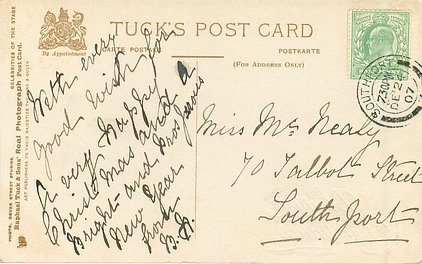 TUCK'S POST CARD
By Appointment
CARTE POSTALE
POSTKARTE
(FOR ADDRESS ONLY)
CELEBRITIES OF THE STAGE
Raphael Tuck & Sons' Real Photograph Post Card.
ART PUBLISHERS TO THEIR MAJESTIES THE KING & QUEEN
PHOTO, DOVER STREET STUDIO.
With every
good wish for
A very happy
Christmas and a
Bright and Prosperous
New Year
from
SOUTHPORT
7.30 PM
DE 24
07
Miss Mc Nealy
70 Talbot Street
Southport